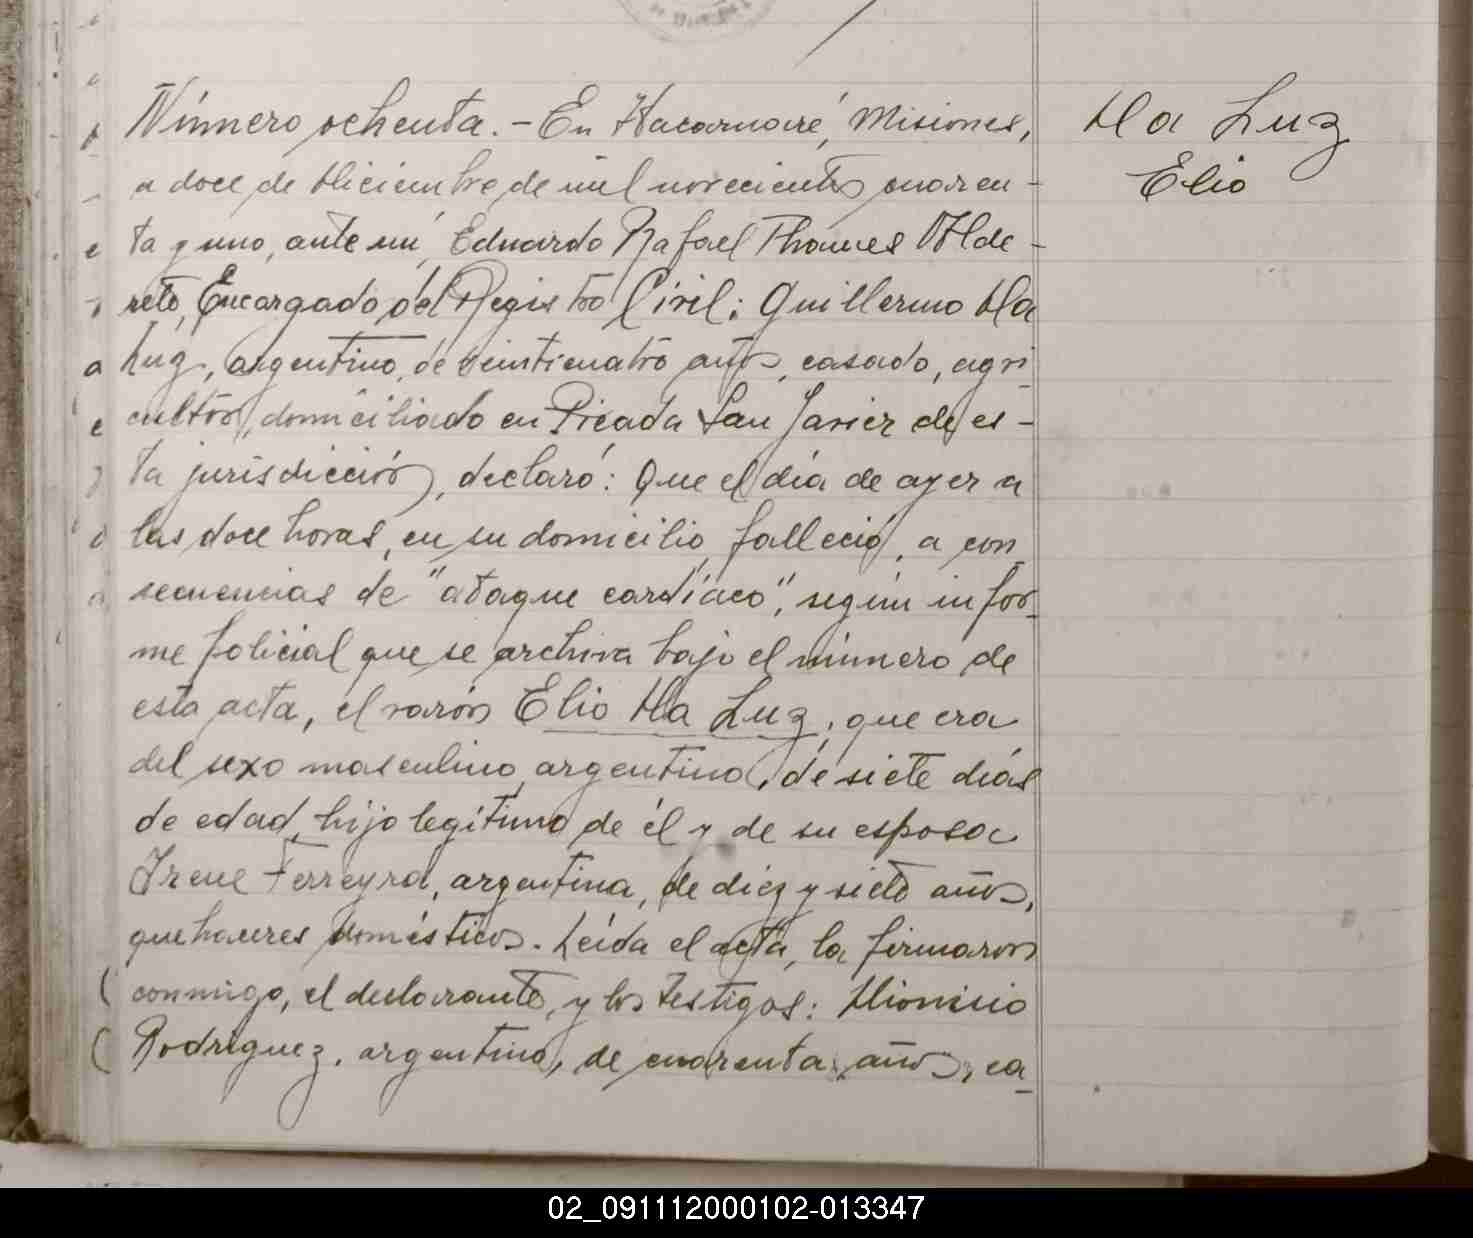 Número ochenta. - En Itacaruaré, Misiones,
a doce de Diciembre de mil novecientos cuaren-
ta y uno, ante mí, Eduardo Rafael Thomes Alde-
rete, Encargado del Registro Civil: Guillermo Da
Luz, argentino, de veinticuatro años, casado, agri-
cultor, domiciliado en Picada San Javier de es-
ta jurisdicción, declaró: Que el día de ayer a
las doce horas, en su domicilio, falleció, a con-
secuencias de "ataque cardíaco", según infor-
me policial que se archiva bajo el número de
esta acta, el varón Elio Da Luz, que era
del sexo masculino, argentino, de siete días
de edad, hijo legítimo de él y de su esposa
Irene Ferreyra, argentina, de diez y siete años,
quehaceres domésticos. Leída el acta, la firmaron
conmigo, el declarante, y los testigos: Dionicio
Rodriguez, argentino, de cuarenta años, ca-
Da Luz
Elio
02_091112000102-013347